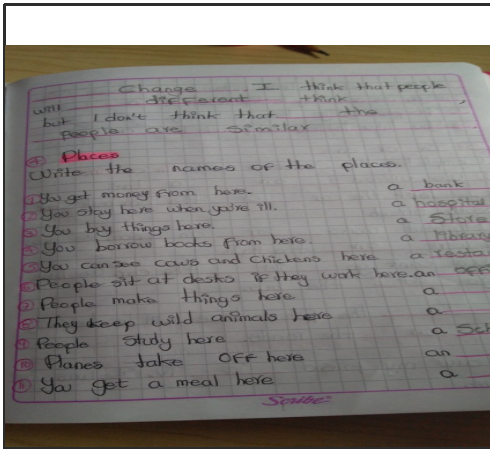 Change I think that people
will different think
but I don't think that the
people are similar
4 Places
Write the names of the places.
1 You get money from here. a bank
2 You stay here when you're ill. a hospital
3 You buy things here. a Store
4 You borrow books from here. a library
5 You can see cows and chickens here a resta
6 People sit at desks if they work here. an off
7 People make things here a
8 They keep wild animals here a
9 People study here a Sch
10 Planes take OFF here an
11 You get a meal here a
Scribe